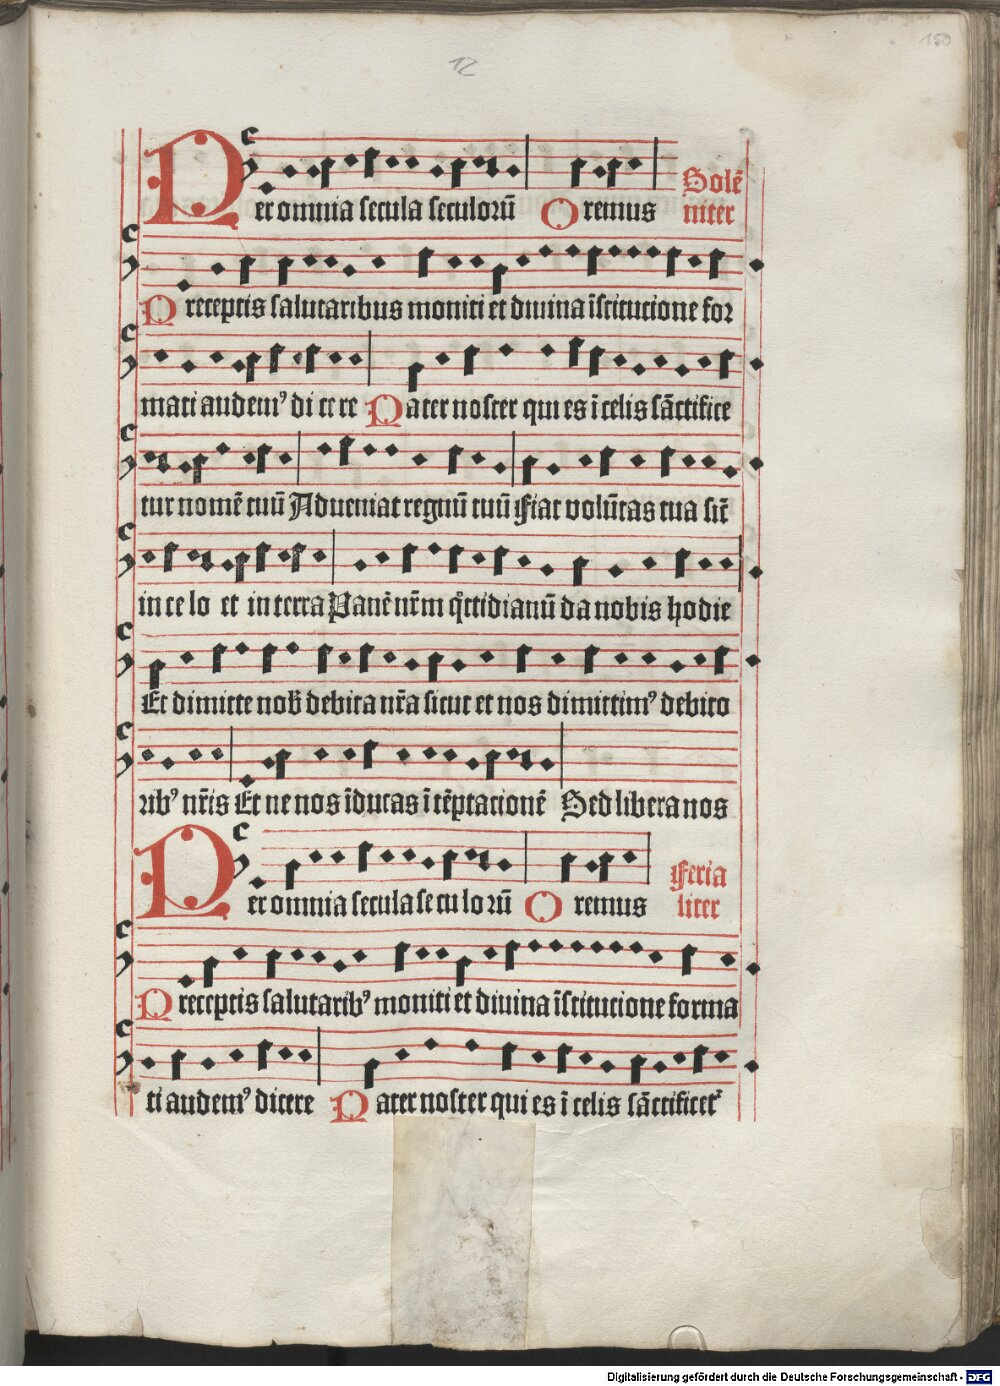 12
150
Per omnia secula seculorū Oremus Solē
niter
Preceptis salutaribus moniti et diuina īstitucione for
mati audemꝰ di ce re Pater noster qui es ī celis sāctifice
tur nomē tuū Adueniat regnū tuū Fiat volūtas tua sic̄
in ce lo et in terra Panē nr̄m q̄tidianū da nobis hodie
Et dimitte nob̄ debita nr̄a sicut et nos dimittimꝰ debito
ribꝰ nr̄is Et ne nos īducas ī tēptacionē Sed libera nos
Per omnia secula se cu lo rū Oremus Feria
liter
Preceptis salutaribꝰ moniti et diuina īstitucione forma
ti audemꝰ dicere Pater noster qui es ī celis sāctificet᷑
Digitalisierung gefördert durch die Deutsche Forschungsgemeinschaft - DFG